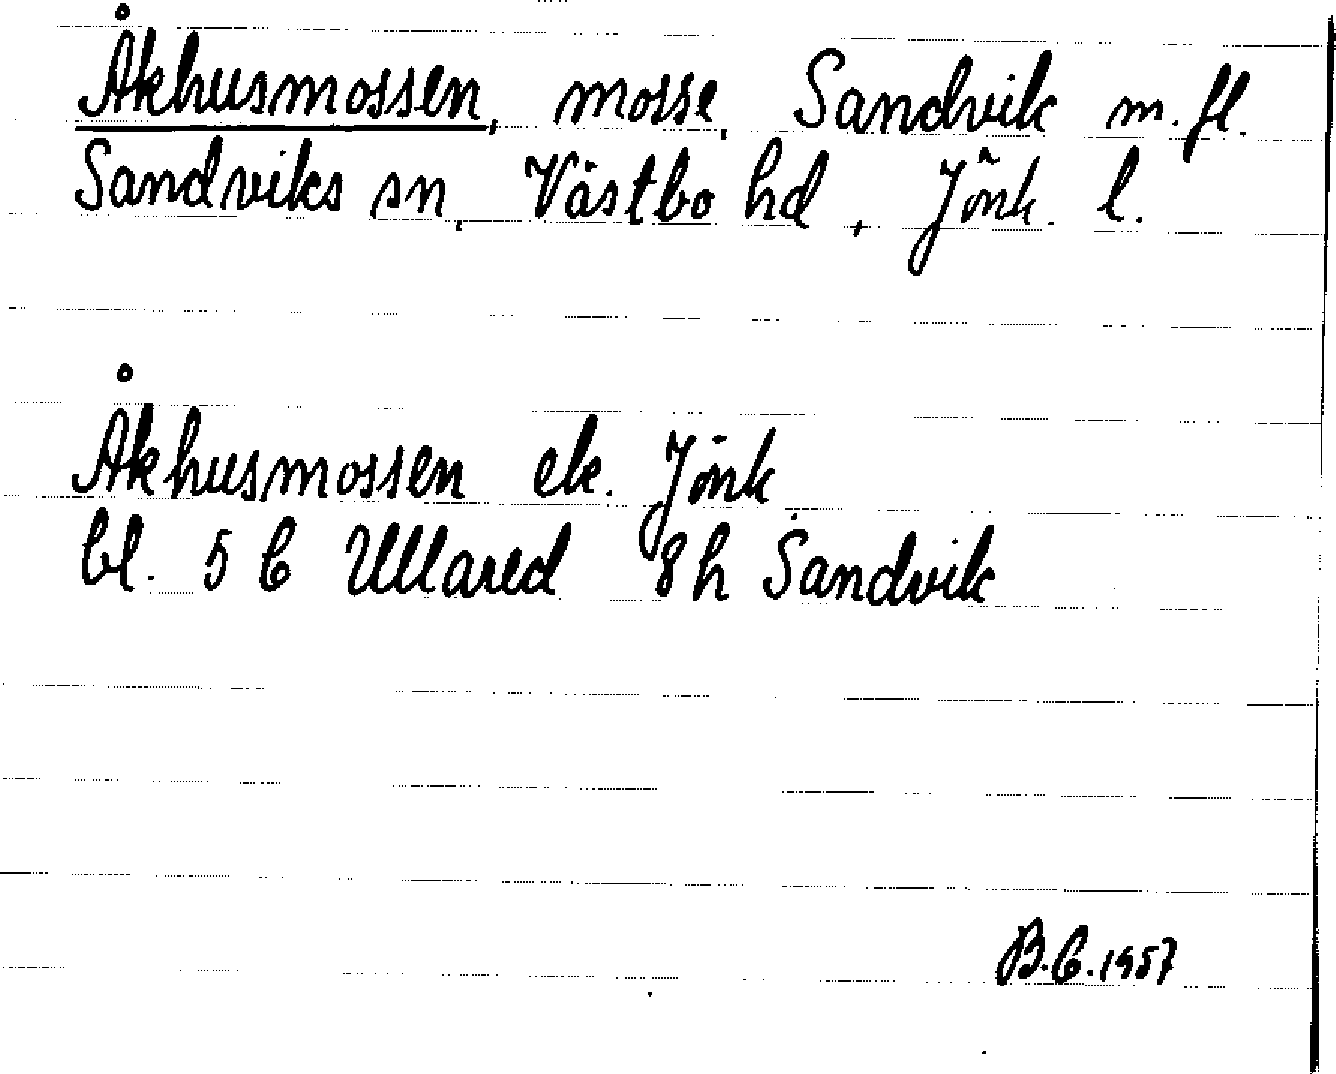 Åkhusmossen, mosse, Sandvik m.fl.
Sandviks sn, Västbo hd, Jönk. l.
Åkhusmossen ek. Jönk
bl. 5 C Ullared 8h Sandvik
B.C. 1957